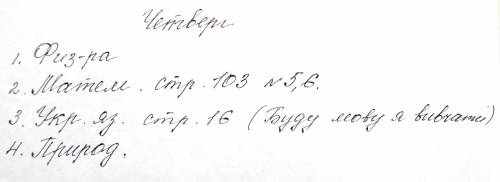 Четверг
1. Физ-ра
2. Матем. стр. 103 №5,6.
3. Укр. яз. стр. 16 (Буду мову я вивчати)
4. Природ.